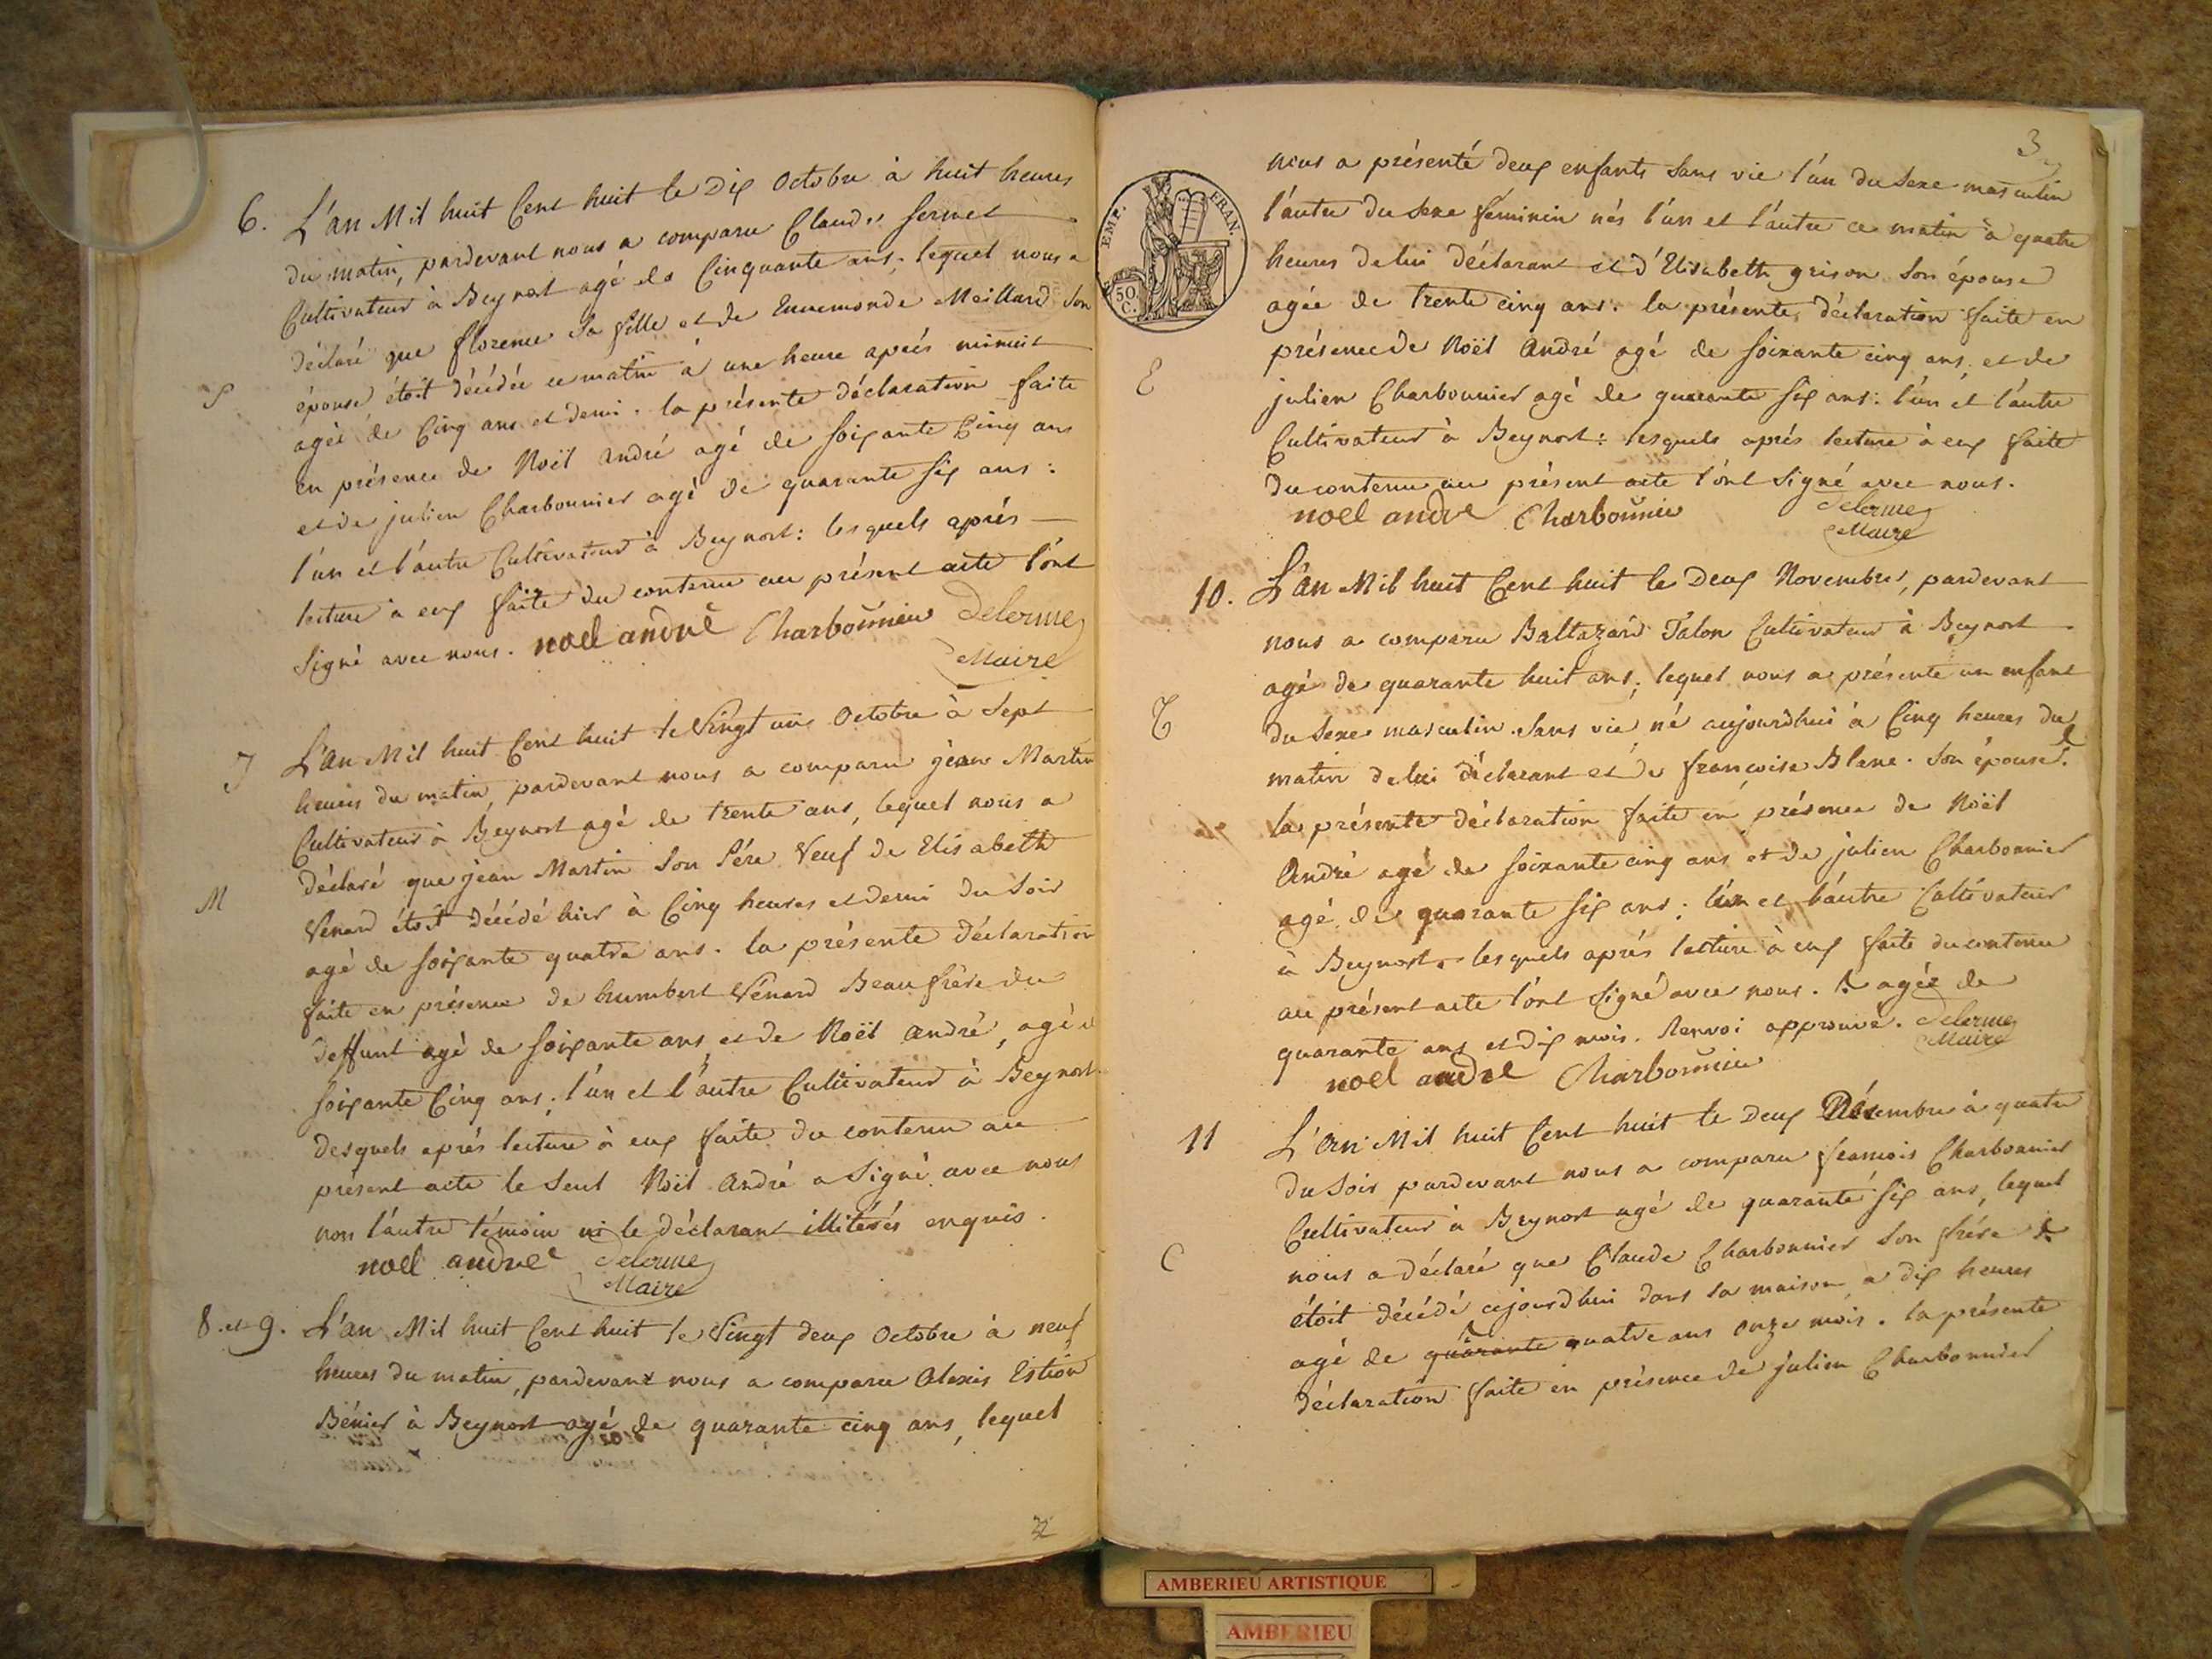 6. L'an Mil huit Cent huit le Dix Octobre à huit heures
du matin, pardevant nous a comparu Claude Sermet
Cultivateur à Beynost agé de Cinquante ans; lequel nous a
déclaré que florence sa fille et de Ennemonde Meillard son
épouse étoit décédée ce matin à une heure après minuit
S
agée de Cinq ans et demi. la présente déclaration faite
en présence de Noël andré agé de soixante Cinq ans
et de julien Charbonnier agé de quarante six ans:
l'un et l'autre Cultivateur à Beynost: lesquels après
lecture à eux faite du contenu au présent acte l'ont
Signé avec nous. noel andré Charbonnier Delorme
Maire
7 L'an Mil huit Cent huit le Vingt un Octobre à Sept
heures du matin, pardevant nous a comparu jean Martin
Cultivateur à Beynost agé de trente ans, lequel nous a
déclaré que jean Martin Son Père Veuf de Elisabeth
M
Vénard étoit décédé hier à Cinq heures et demi du Soir
agé de soixante quatre ans. la présente déclaration
faite en présence de humbert Vénard Beaufrère du
deffunt agé de soixante ans et de Noël andré, agé de
soixante Cinq ans; l'un et l'autre Cultivateur à Beynost
desquels après lecture à eux faite du contenu au
présent acte le Seul Noël André a Signé avec nous
non l'autre témoin ni le déclarant illitérés enquis.
noel andre Delorme
Maire
8. et 9. L'an Mil huit Cent huit le Vingt deux Octobre à neuf
heures du matin, pardevant nous a comparu Alexis Estion
Bénier à Beynost agé de quarante cinq ans, lequel
3
EMP. FRAN.
50 C.
nous a présenté deux enfants sans vie l'un du Sexe masculin
l'autre du Sexe féminin nés l'un et l'autre ce matin à quatre
heures de lui déclarant et d'Elisabeth grison Son épouse
agée de trente cinq ans. la présente déclaration faite en
présence de Noël André agé de soixante cinq ans, et de
E
julien Charbonnier agé de quarante six ans: l'un et l'autre
Cultivateur à Beynost: lesquels après lecture à eux faite
du contenu au présent acte l'ont Signé avec nous.
noel andre Charbonnier Delorme
Maire
10. L'an Mil huit Cent huit le Deux Novembre, pardevant
nous a comparu Baltazard Talon Cultivateur à Beynost
agé de quarante huit ans, lequel nous a présenté un enfant
T
du Sexe masculin sans vie né aujourdhui à Cinq heures du
matin de lui déclarant et de françoise Blanc Son épouse.
la présente déclaration faite en présence de Noël
André agé de soixante cinq ans et de julien Charbonnier
agé de quarante six ans; l'un et l'autre Cultivateur
à Beynost. lesquels après lecture à eux faite du contenu
au présent acte l'ont Signé avec nous. agée de
quarante ans et dix mois. Renvoi approuvé. Delorme
Maire
noel andre Charbonnier
11 L'an Mil huit Cent huit le Deux Décembre à quatre
du Soir pardevant nous a comparu francois Charbonnier
Cultivateur à Beynost agé de quarante six ans, lequel
nous a déclaré que Claude Charbonnier Son frère
C
étoit décédé cejourdhui dans sa maison à dix heures
agé de quarante quatre ans onze mois. la présente
déclaration faite en présence de julien Charbonnier
AMBERIEU ARTISTIQUE
AMBERIEU